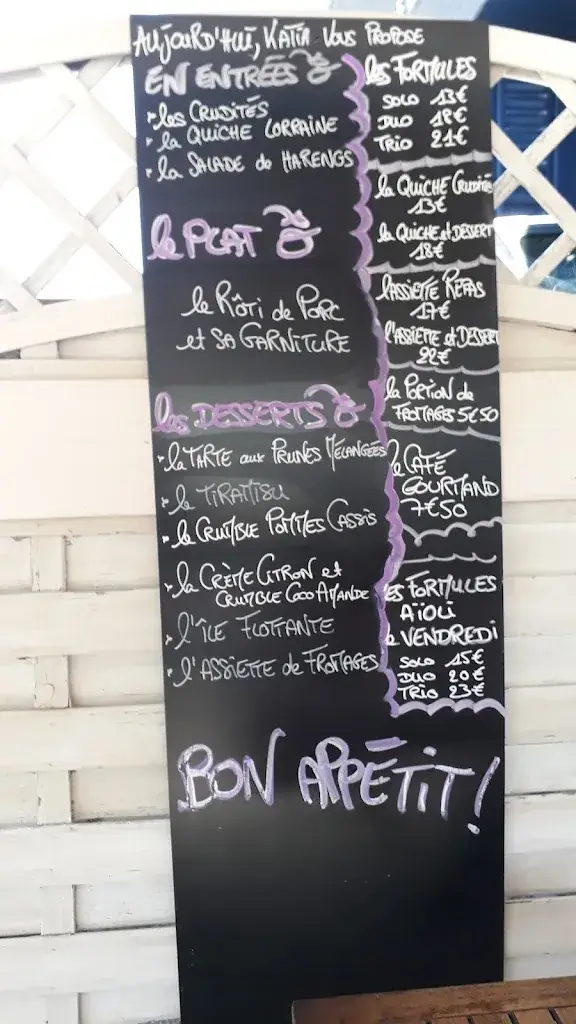 AUJOURD'HUI, KATIA VOUS PROPOSE
EN ENTRÉES
les CRUDITÉS
la QUICHE LORRAINE
la SALADE de HARENGS
le PLAT
le RÔTI de PORC
et SA GARNITURE
les DESSERTS
la TARTE aux PRUNES MÉLANGÉES
le TIRAMISU
le CRUMBLE POMMES CASSIS
la CRÈME CITRON et
CRUMBLE COCO AMANDE
l'ÎLE FLOTTANTE
l'ASSIETTE de FROMAGES
les FORMULES
SOLO 13€
DUO 18€
TRIO 21€
la QUICHE CRUDITÉS
13€
la QUICHE et DESSERT
18€
l'ASSIETTE REPAS
17€
l'ASSIETTE et DESSERT
22€
la PORTION de
FROMAGES 5€50
le CAFÉ
GOURMAND
7€50
les FORMULES
AÏOLI
le VENDREDI
SOLO 15€
DUO 20€
TRIO 23€
BON APPÉTIT !